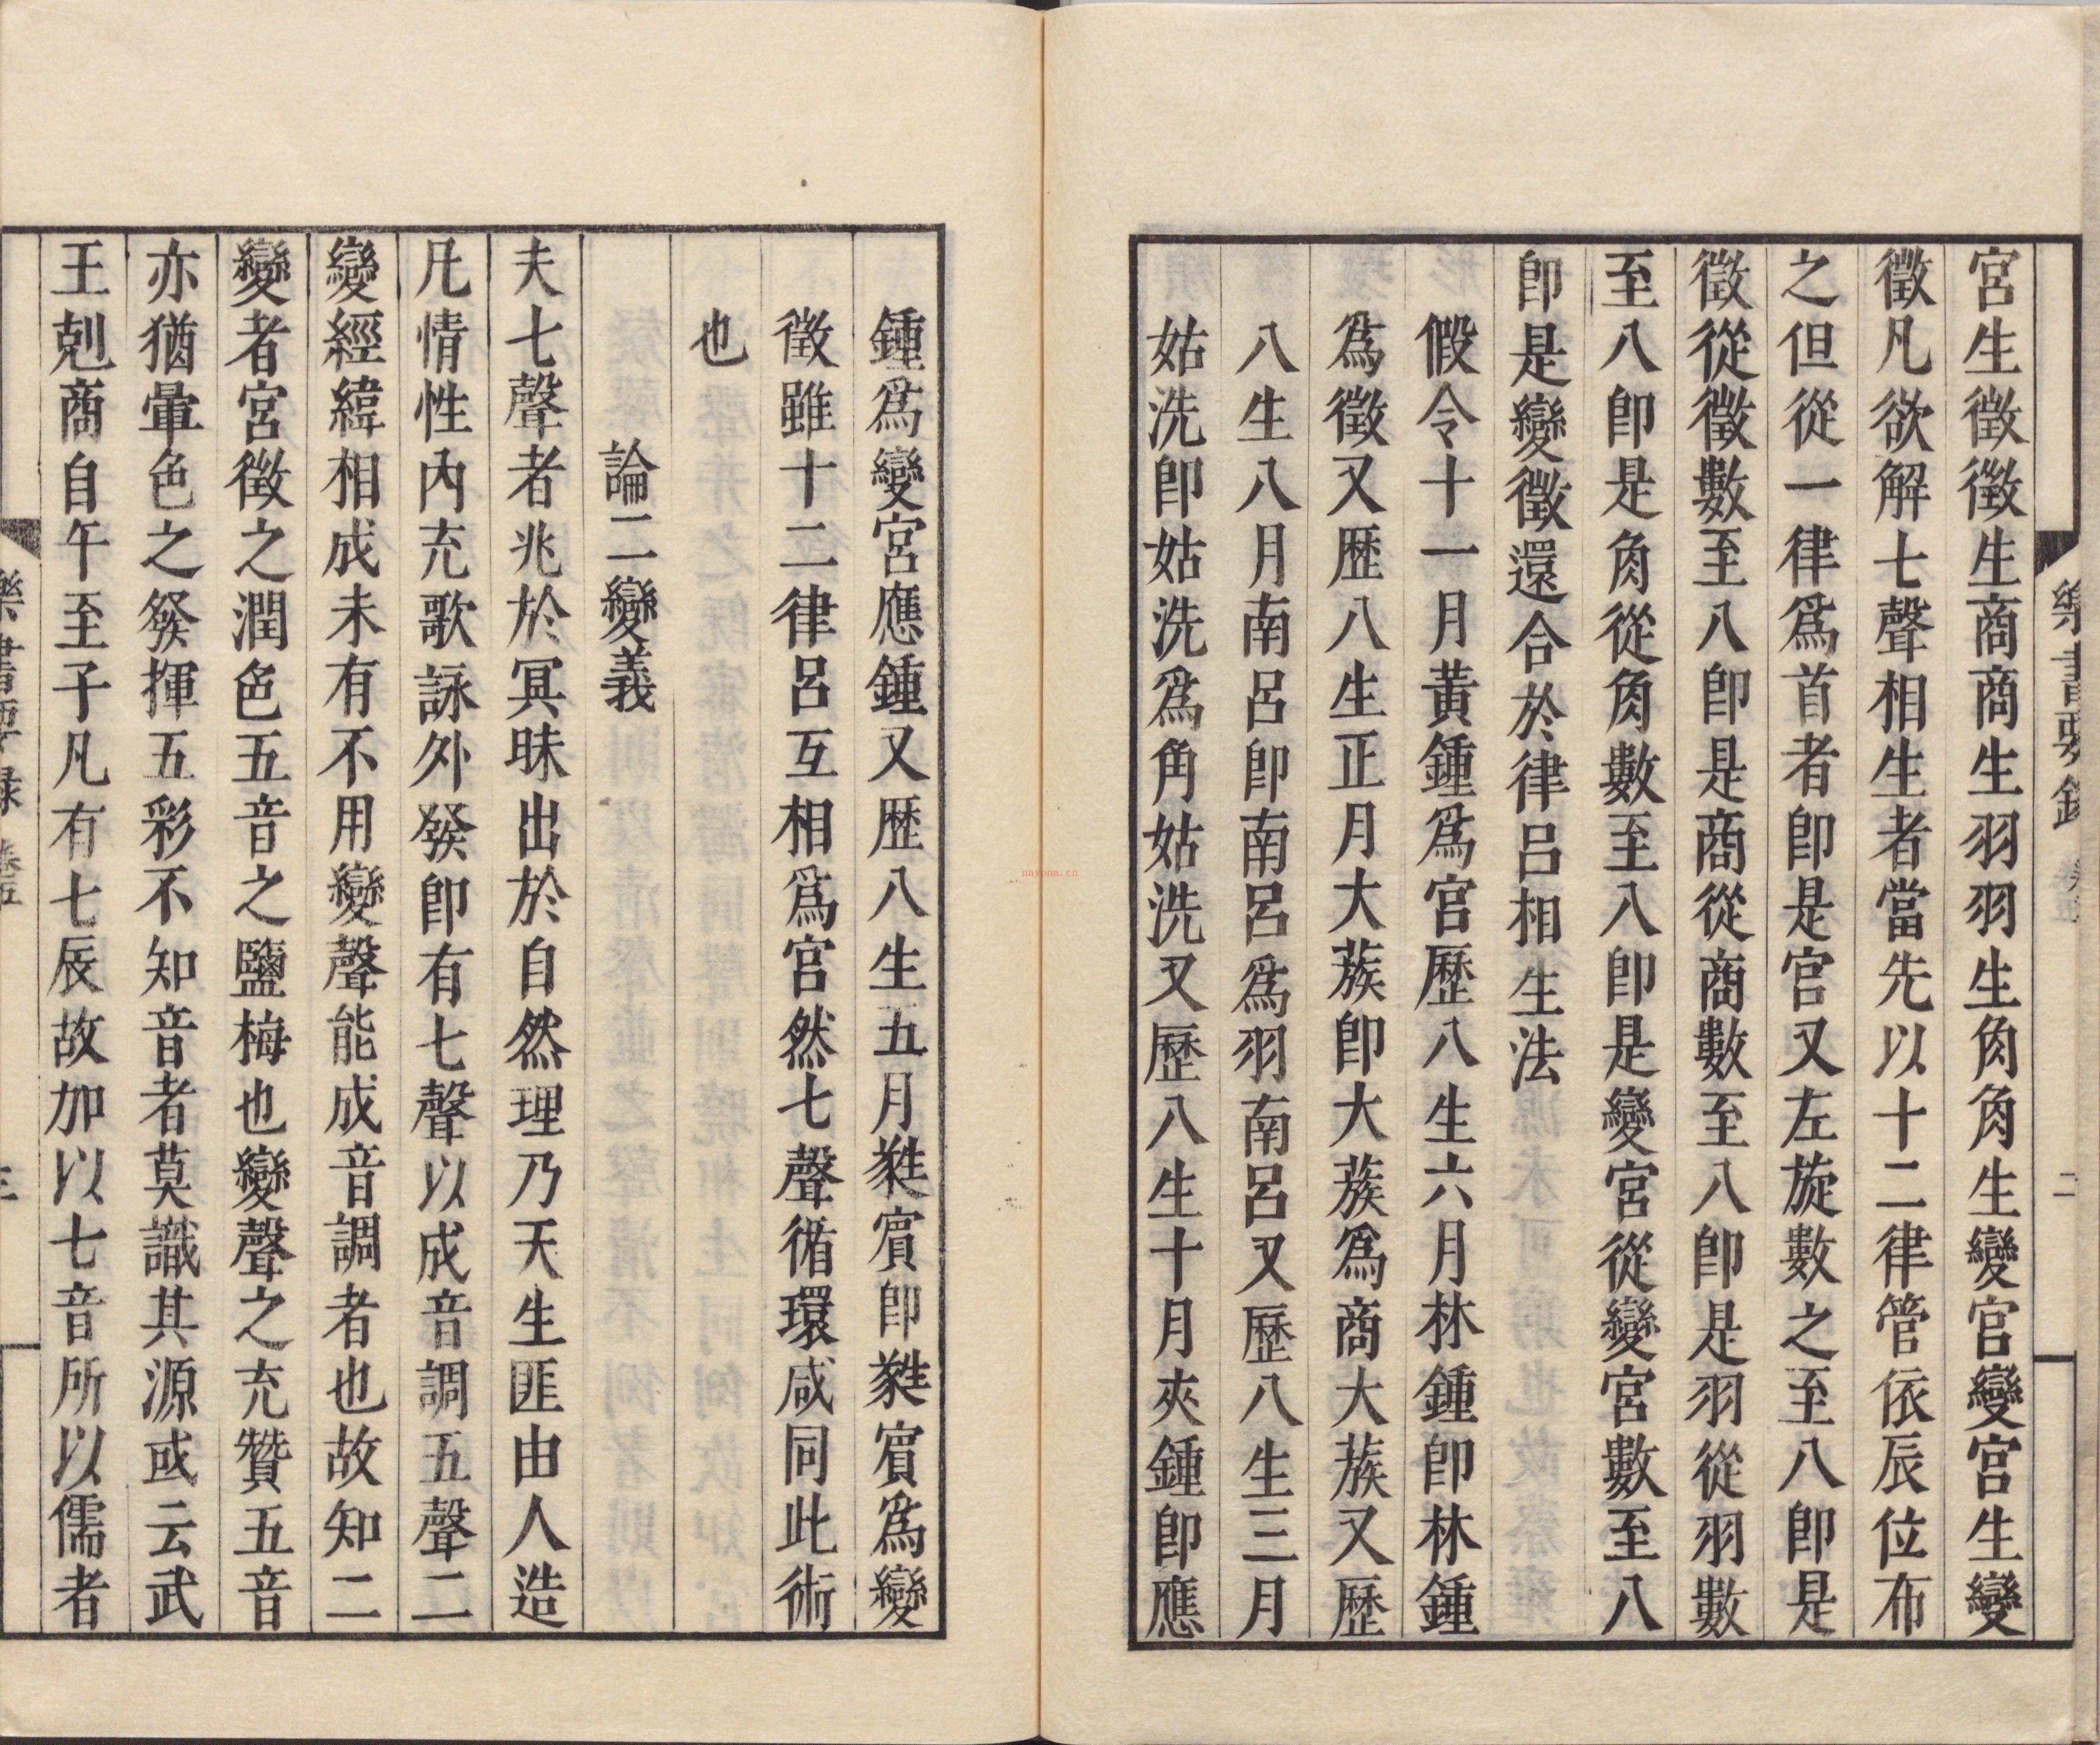 樂書要錄 卷五 二
宮生徵徵生商商生羽羽生角角生變宮變宮生變
徵凡欲解七聲相生者當先以十二律管依辰位布
之但從一律爲首者卽是宮又左旋數之至八卽是
徵從徵數至八卽是商從商數至八卽是羽從羽數
至八卽是角從角數至八卽是變宮從變宮數至八
卽是變徵還合於律呂相生法
假令十一月黃鍾爲宮歷八生六月林鍾卽林鍾
爲徵又歷八生正月大蔟卽大蔟爲商大蔟又歷
八生八月南呂卽南呂爲羽南呂又歷八生三月
姑洗卽姑洗爲角姑洗又歷八生十月夾鍾卽應
鍾爲變宮應鍾又歷八生五月蕤賓卽蕤賓爲變
徵雖十二律呂互相爲宮然七聲循環咸同此術
也
論二變義
夫七聲者兆於冥昧出於自然理乃天生匪由人造
凡情性內充歌詠外發卽有七聲以成音調五聲二
變經緯相成未有不用變聲能成音調者也故知二
變者宮徵之潤色五音之鹽梅也變聲之充贊五音
亦猶暈色之發揮五彩不知音者莫識其源或云武
王剋商自午至子凡有七辰故加以七音所以儒者
樂書要録 卷五
nayona.cn